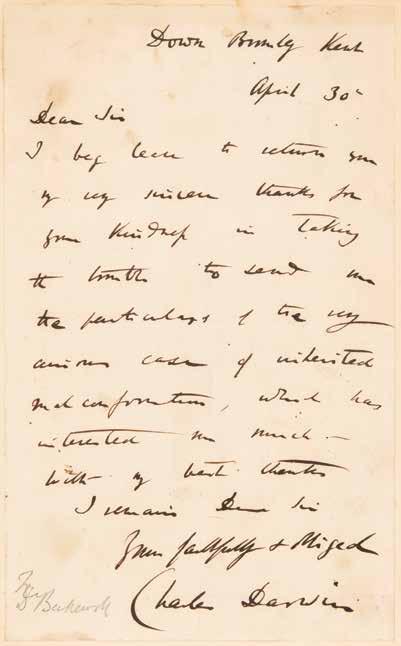 Down Bromley Kent
April 30th
Dear Sir
I beg leave to return you
my very sincere thanks for
your kindness in taking
the trouble to send me
the particulars of the very
curious case of inherited
mal conformation, which has
interested me much —
With my best thanks
I remain Dear Sir
Yours faithfully & obliged
Charles Darwin
Dr